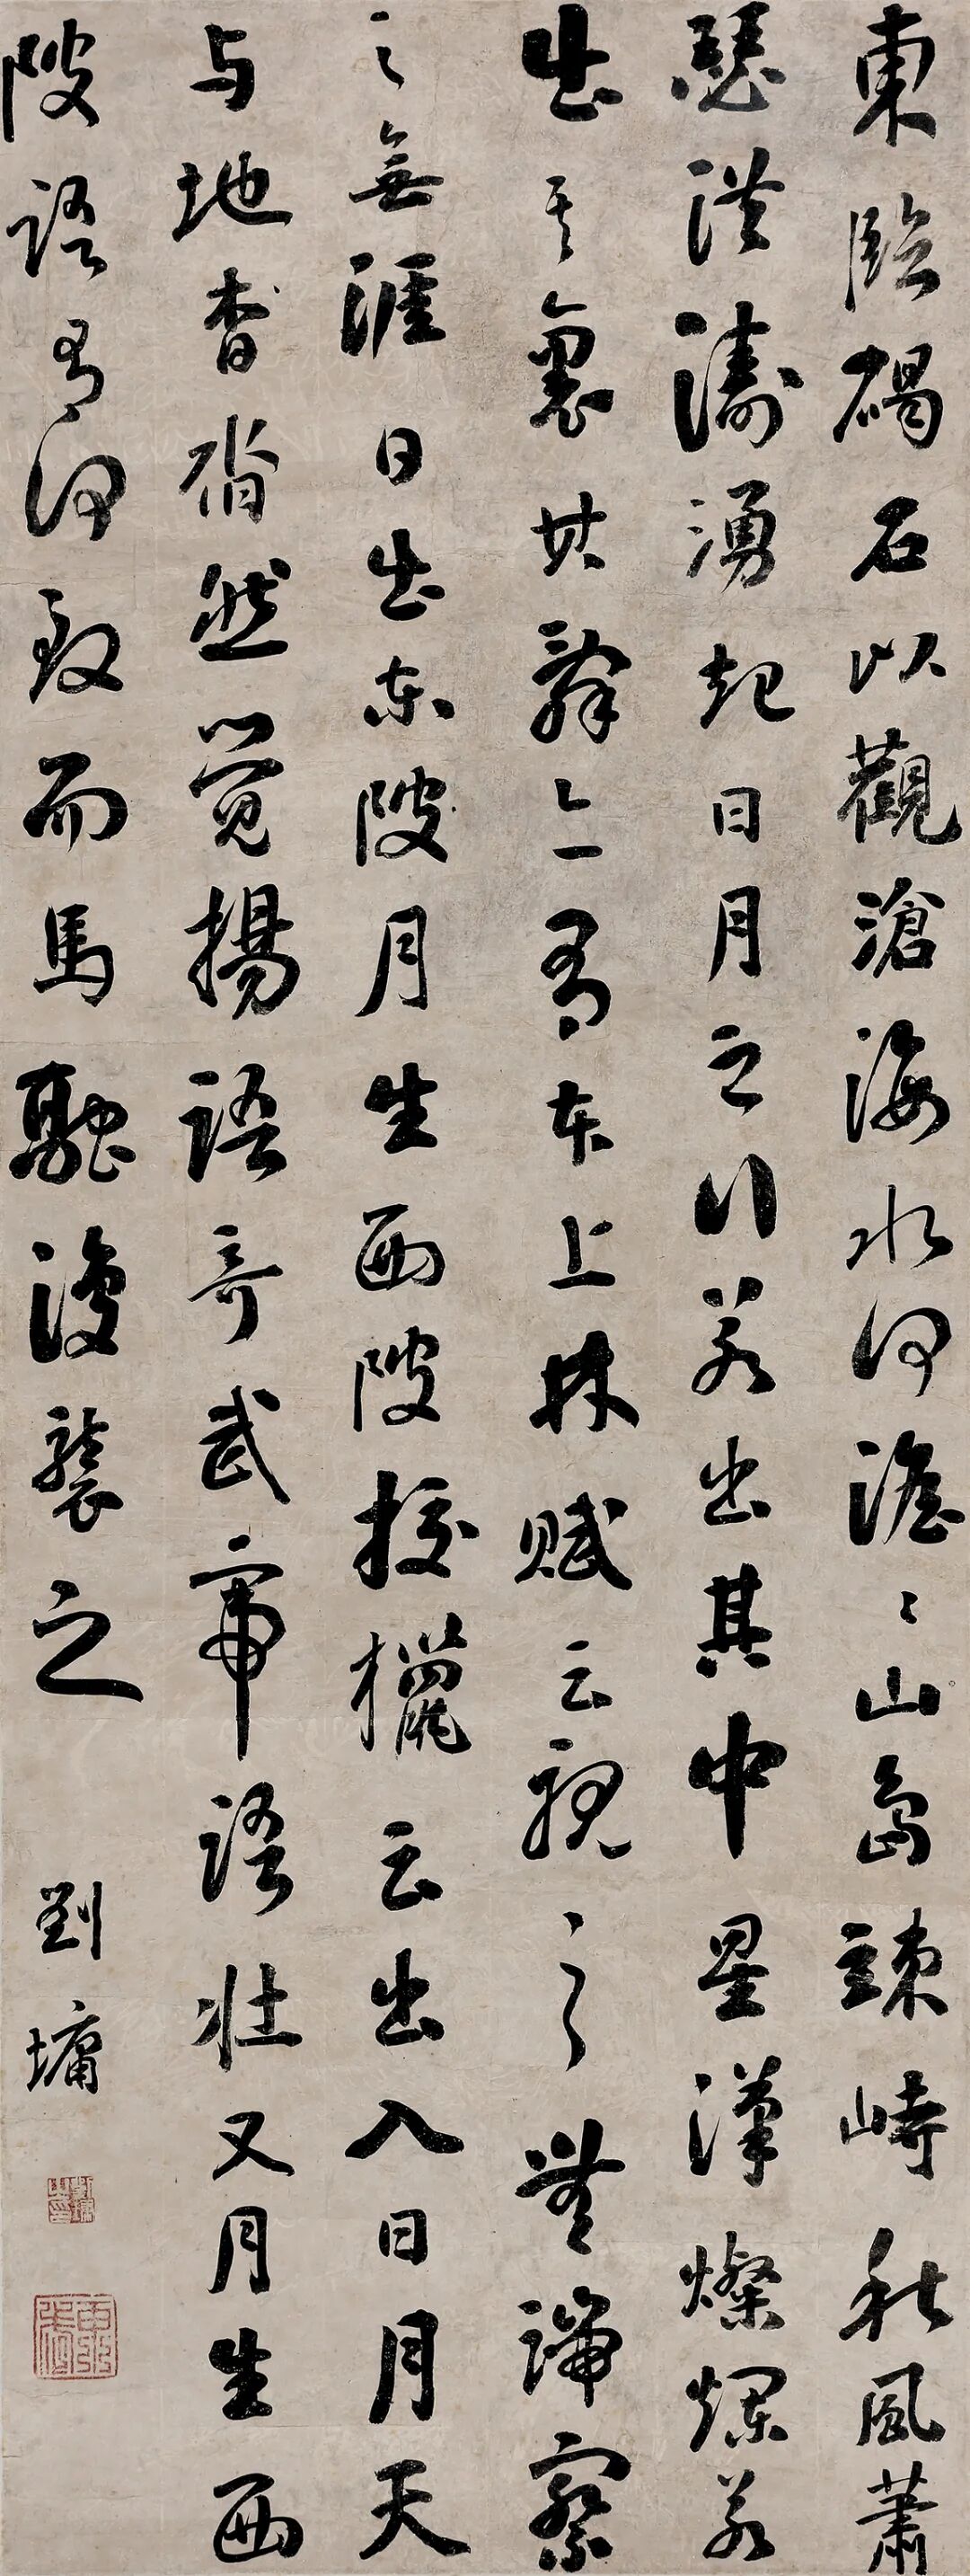 東臨碣石以觀滄海水何澹〻山島竦峙秋風蕭
瑟洪濤湧起日月之行若出其中星漢燦爛若
出其裏其辭亦有本上林賦云視之無端察
之無涯日出東陂月生西陂校獵云出入日月天
与地杳然覺揚語奇武帝語壯又月生西
陂語有何致而馬融復襲之
劉墉